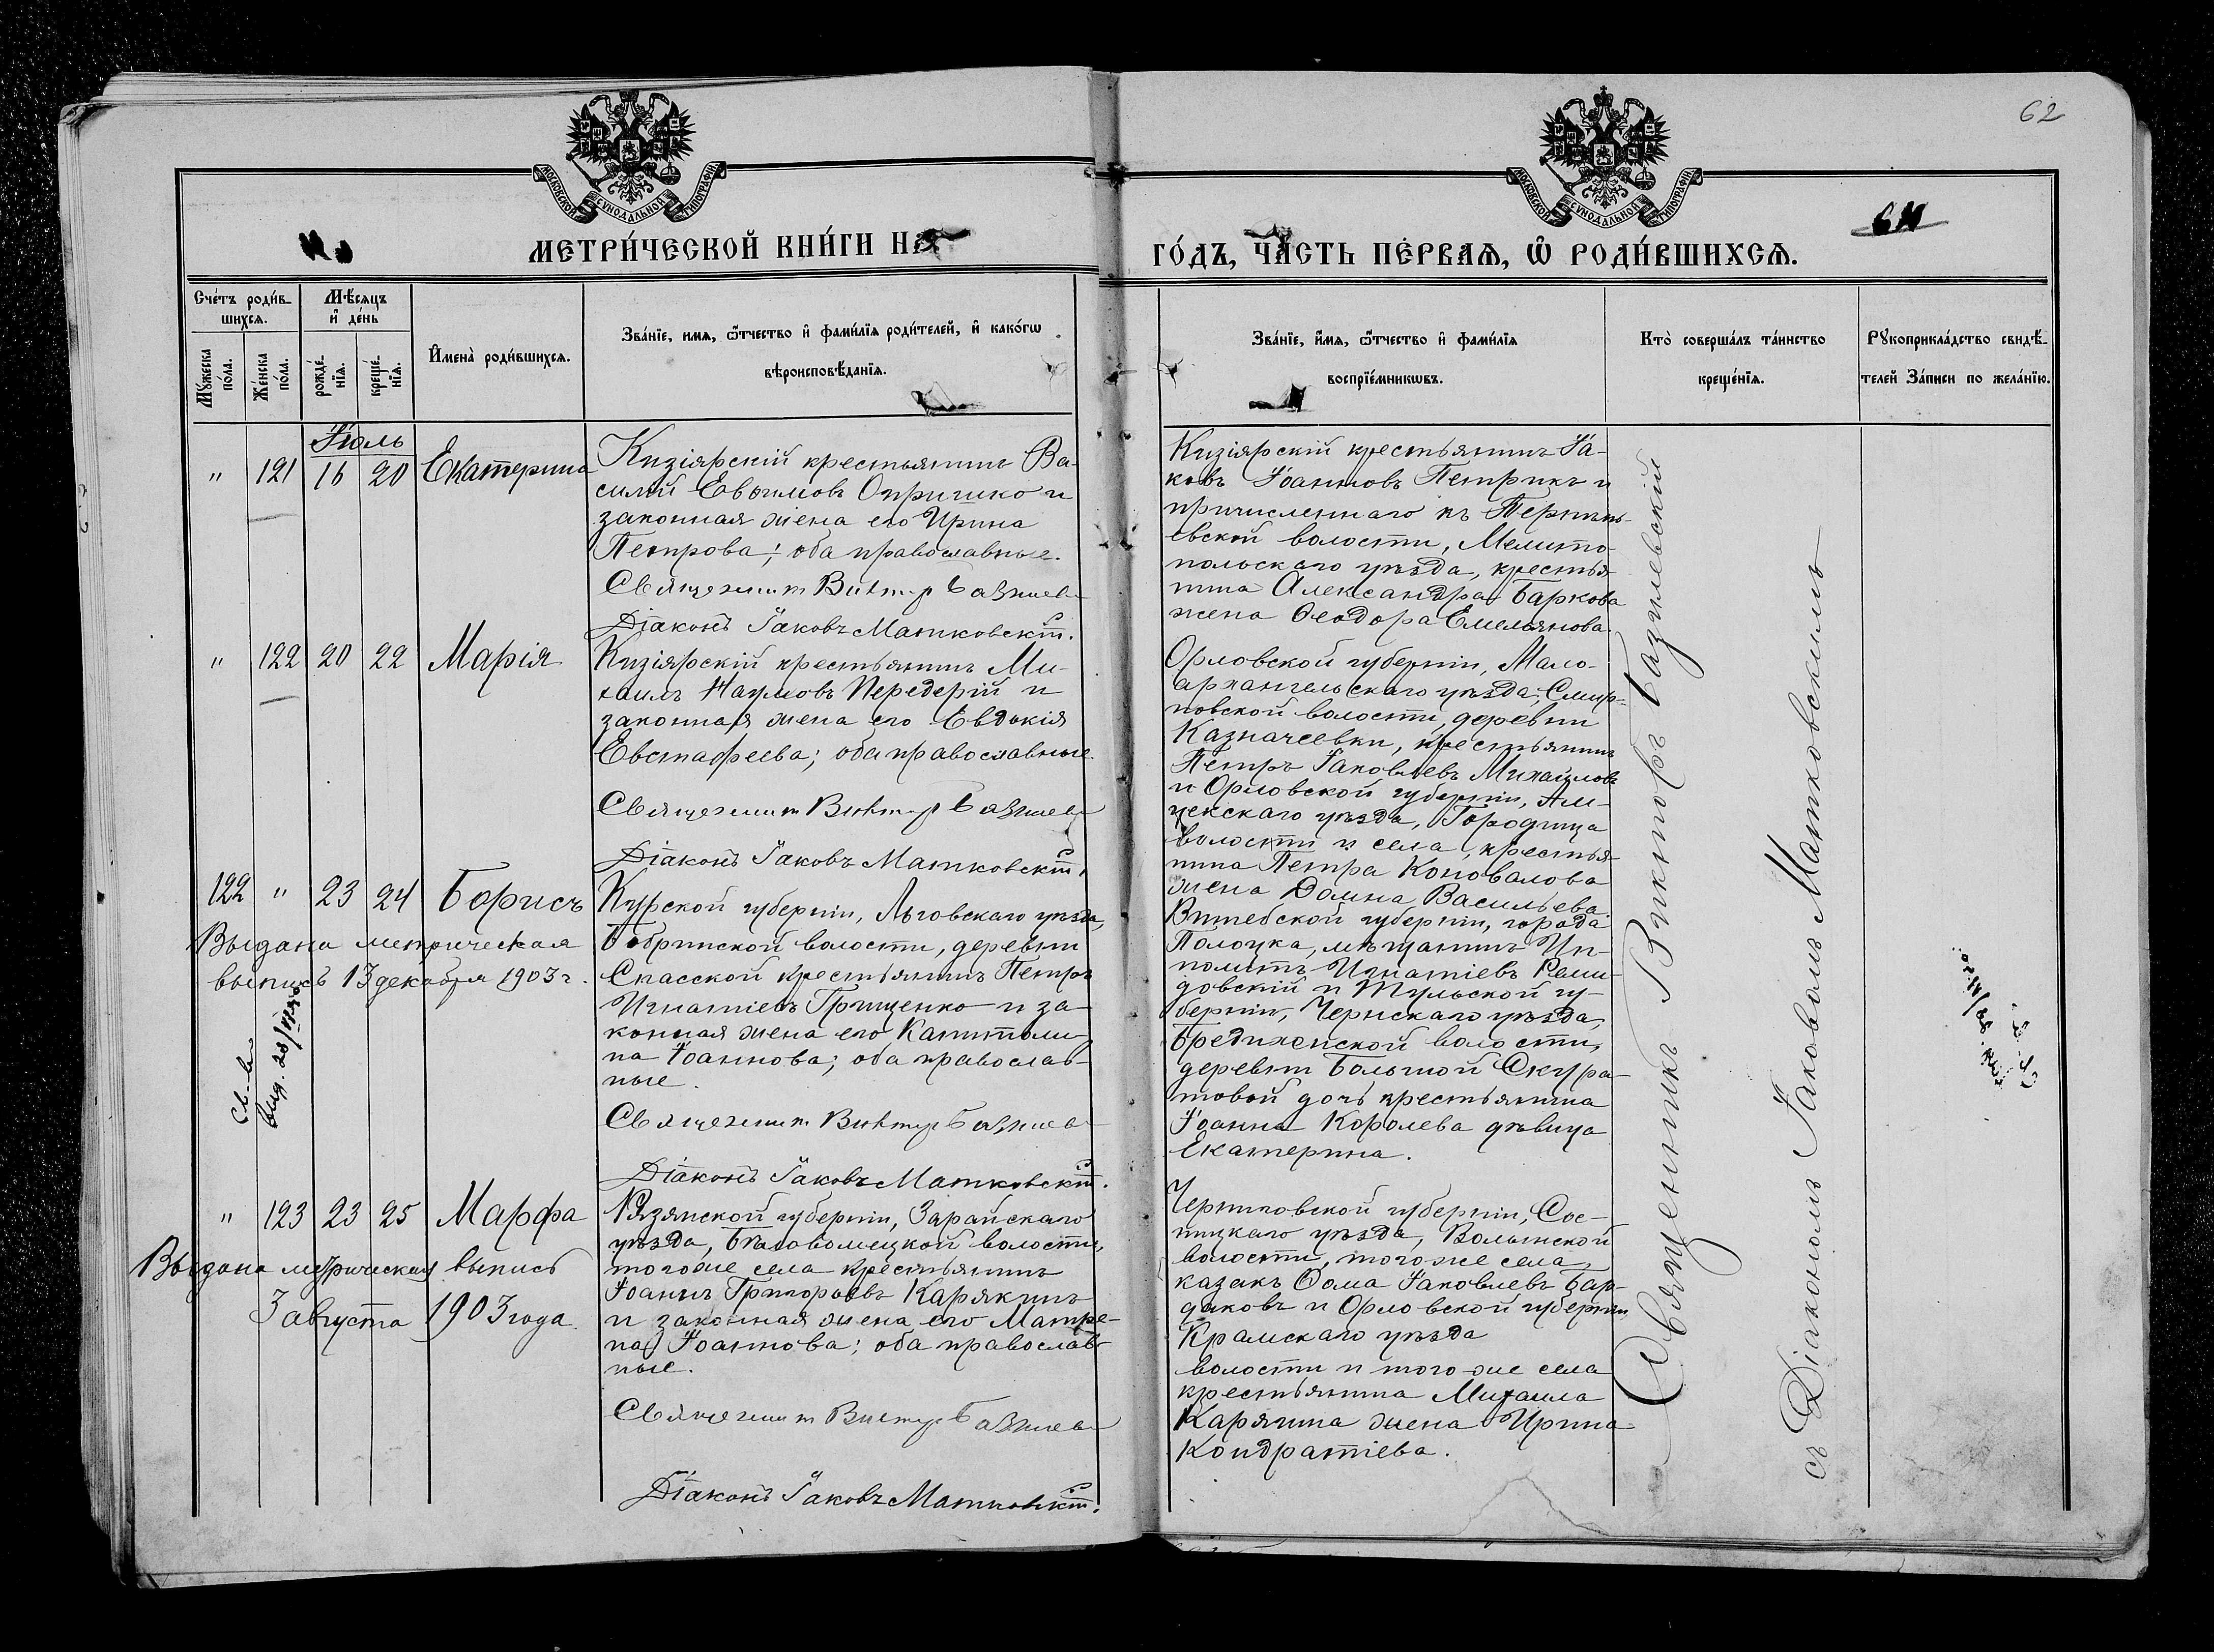 62
МОСКОВСКОЙ СѴНОДАЛЬНОЙ ТИПОГРАФІИ
МОСКОВСКОЙ СѴНОДАЛЬНОЙ ТИПОГРАФІИ
МЕТРИ́ЧЕСКОЙ КНИ́ГИ НА
ГО́ДЪ, ЧА́СТЬ ПЕ́РВАѦ, Ѡ҆ РОДИ́ВШИХСѦ.
Сче́тъ роди́в-
шихсѧ.
Мꙋ́жеска
по́ла.
Же́нска
по́ла.
Мѣ́сѧцъ
и҆ де́нь
рожде́-
нїѧ.
креще́-
нїѧ.
И҆мена̀ роди́вшихсѧ.
Зва́нїе, имѧ, ѻ҆́тчество и҆ фами́лїѧ роди́телей, и҆ како́гѡ
вѣроисповѣ́данїѧ.
Зва́нїе, и҆́мѧ, ѻ҆́тчество и҆ фами́лїѧ
воспрїе́мникѡвъ.
Кто̀ соверша́лъ та́инство
креще́нїѧ.
Рꙋкоприкла́дство свидѣ́-
телей За́писи по жела́нїю.
Іюль
" 121 16 20 Екатерина
Кизіярскій крестьянинъ Ва-
силій Евѳимовъ Опришко и
законная жена его Ирина
Петрова; оба православные.
Священник Виктор Бажнев
Діаконъ Іаковъ Матковскій.
Кизіярскій крестьянинъ Іа-
ковъ Іоанновъ Петрикъ и
причисленнаго къ Терпѣнь-
евской волости, Мелито-
польскаго уѣзда, крестья-
нина Александра Баркова
жена Ѳеодора Емельянова.
" 122 20 22 Марія
Кизіярскій крестьянинъ Ми-
хаилъ Наумовъ Передерій и
законная жена его Евдокія
Евстафеева; оба православные.
Священник Виктор Бажнев
Діаконъ Іаковъ Матковскій.
Орловской губерніи, Мало-
архангельскаго уѣзда, Смир-
новской волости, деревни
Казначеевки, крестьянинъ
Петръ Іаковлевъ Михайловъ
и Орловской губерніи,
уѣзда, Городища
волости и села, крестья-
нина Петра Коновалова
жена Домна Васильева.
122 " 23 24 Борисъ
Выдана метрическая
выпись 13 декабря 1903 г.
Курской губерніи, Льговскаго уѣзда,
Бобринской волости, деревни
Спасской крестьянинъ Петръ
Игнатіевъ Грищенко и за-
конная жена его Капитоли-
на Іоаннова; оба православ-
ные.
Священник Виктор Бажнев
Діаконъ Іаковъ Матковскій.
Витебской губерніи, города
Полоцка, мѣщанинъ Ип-
политъ Игнатіевъ Реми-
довскій и Тульской гу-
берніи, Чернскаго уѣзда,
Бредихенской волости,
деревни Большой Скура-
товой дочь крестьянина
Іоанна Королева дѣвица
Екатерина.
" 123 23 25 Марфа
Выдана метрическая выпись
3 августа 1903 года.
Рязанской губерніи, Зарайскаго
уѣзда, волости,
тогоже села крестьянинъ
Іоаннъ Григорьевъ Карякинъ
и законная жена его Матре-
на Іоаннова; оба православ-
ные.
Священник Виктор Бажнев
Діаконъ Іаковъ Матковскій.
Черниговской губерніи, Сос-
ницкаго уѣзда, Волынской
волости, того же села,
казакъ Ѳома Іаковлевъ
и Орловской губерніи,
Крамскаго уѣзда
волости и того же села
крестьянина Михаила
Карягина жена Ирина
Кондратіева.
Священникъ Викторъ Бажневскій
съ Діакономъ Іаковомъ Матковскимъ